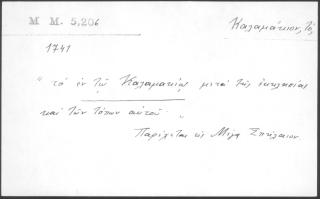 M M. 5,206
Καλαμάκιον, τό
1741
"τὸ ἐν τῷ Καλαμακίῳ μετὰ τῆς ἐκκλησίας
καὶ τῶν τόπων αὐτοῦ"
Παρέχεται εἰς Μέγα Σπήλαιον